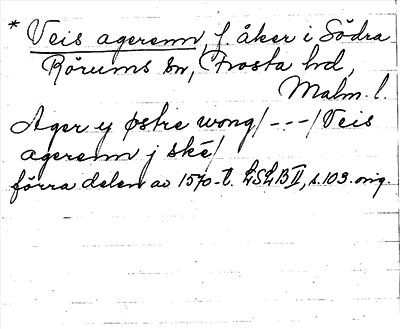 * Veis agerenn, f. åker i Södra
Rörums sn, Frosta hd,
Malm. l.
Ager y østre wong/---/Veis
agerenn j ské/
förra delen av 1570-t. LSLB II, s. 103. orig.